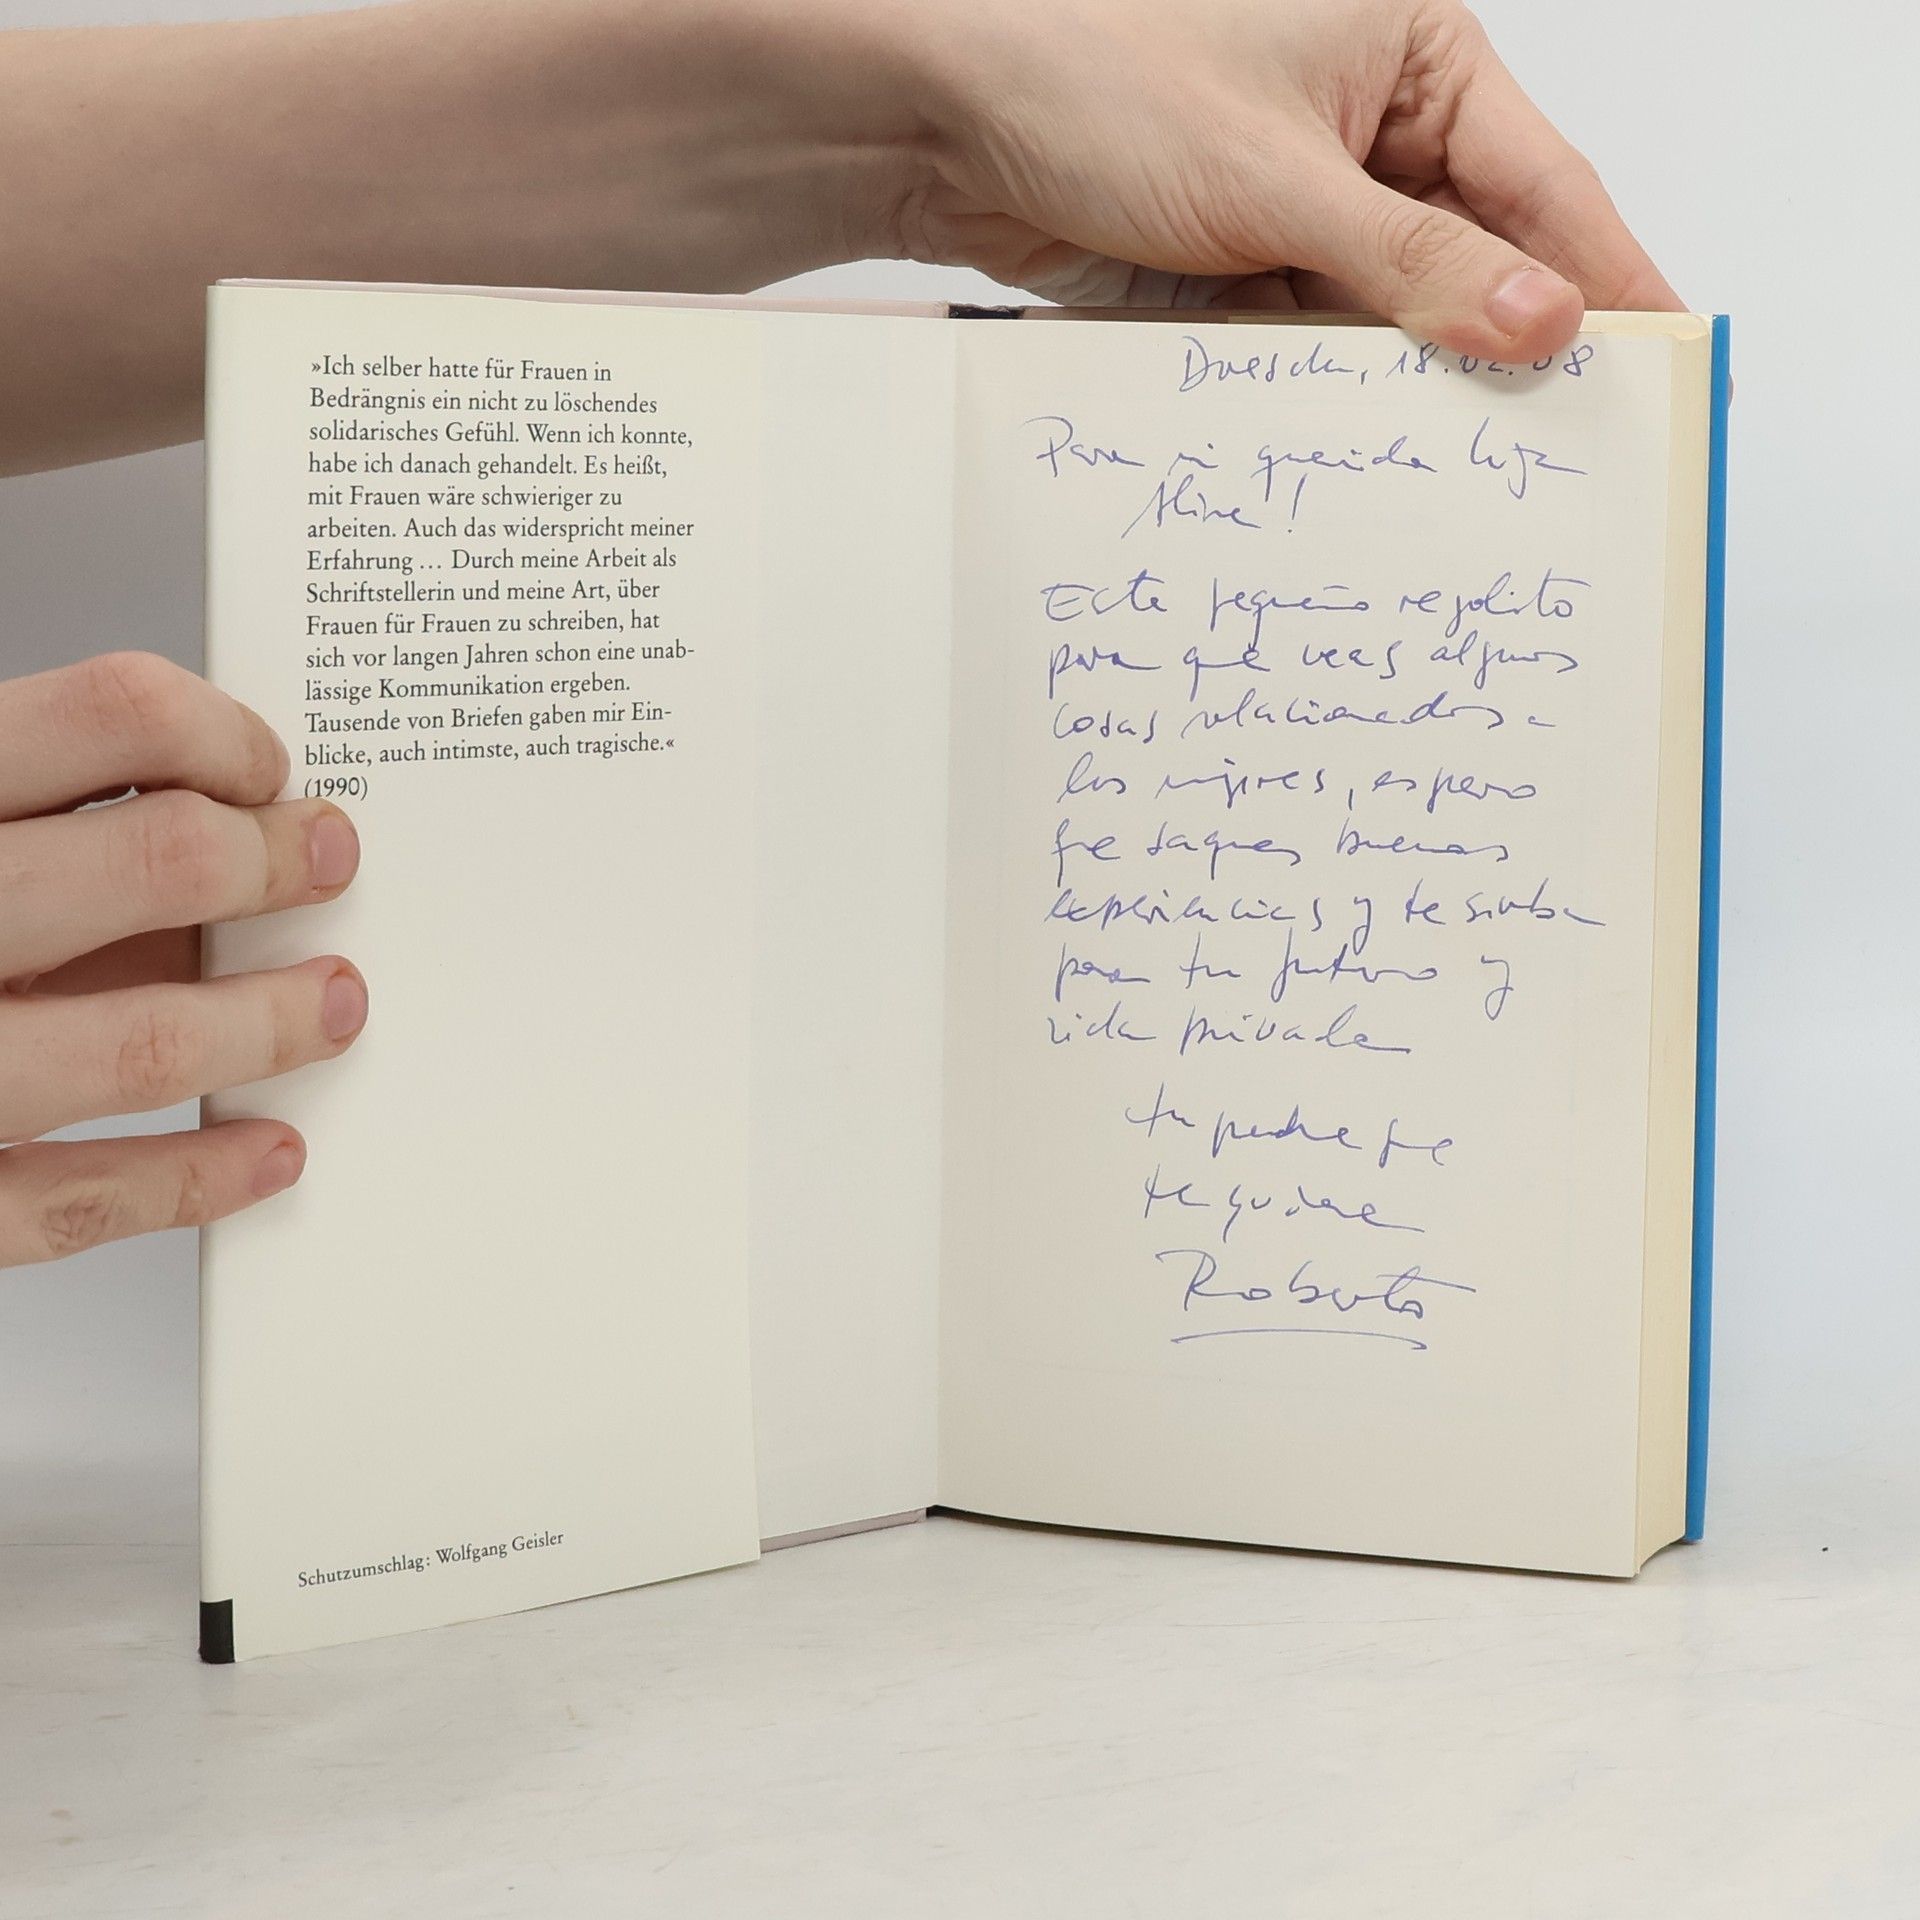 »Ich selber hatte für Frauen in
Bedrängnis ein nicht zu löschendes
solidarisches Gefühl. Wenn ich konnte,
habe ich danach gehandelt. Es heißt,
mit Frauen wäre schwieriger zu
arbeiten. Auch das widerspricht meiner
Erfahrung ... Durch meine Arbeit als
Schriftstellerin und meine Art, über
Frauen für Frauen zu schreiben, hat
sich vor langen Jahren schon eine unab-
lässige Kommunikation ergeben.
Tausende von Briefen gaben mir Ein-
blicke, auch intimste, auch tragische.«
(1990)
Schutzumschlag: Wolfgang Geisler
Dresden, 18.
Para mi querida hija
Este pequeño regalito
para que veas algunas
cosas relacionados a
las mujeres, espero
que saques buenas
experiencias y te sirva
para tu futuro y
vida privada
tu padre que
te quiere
Roberto